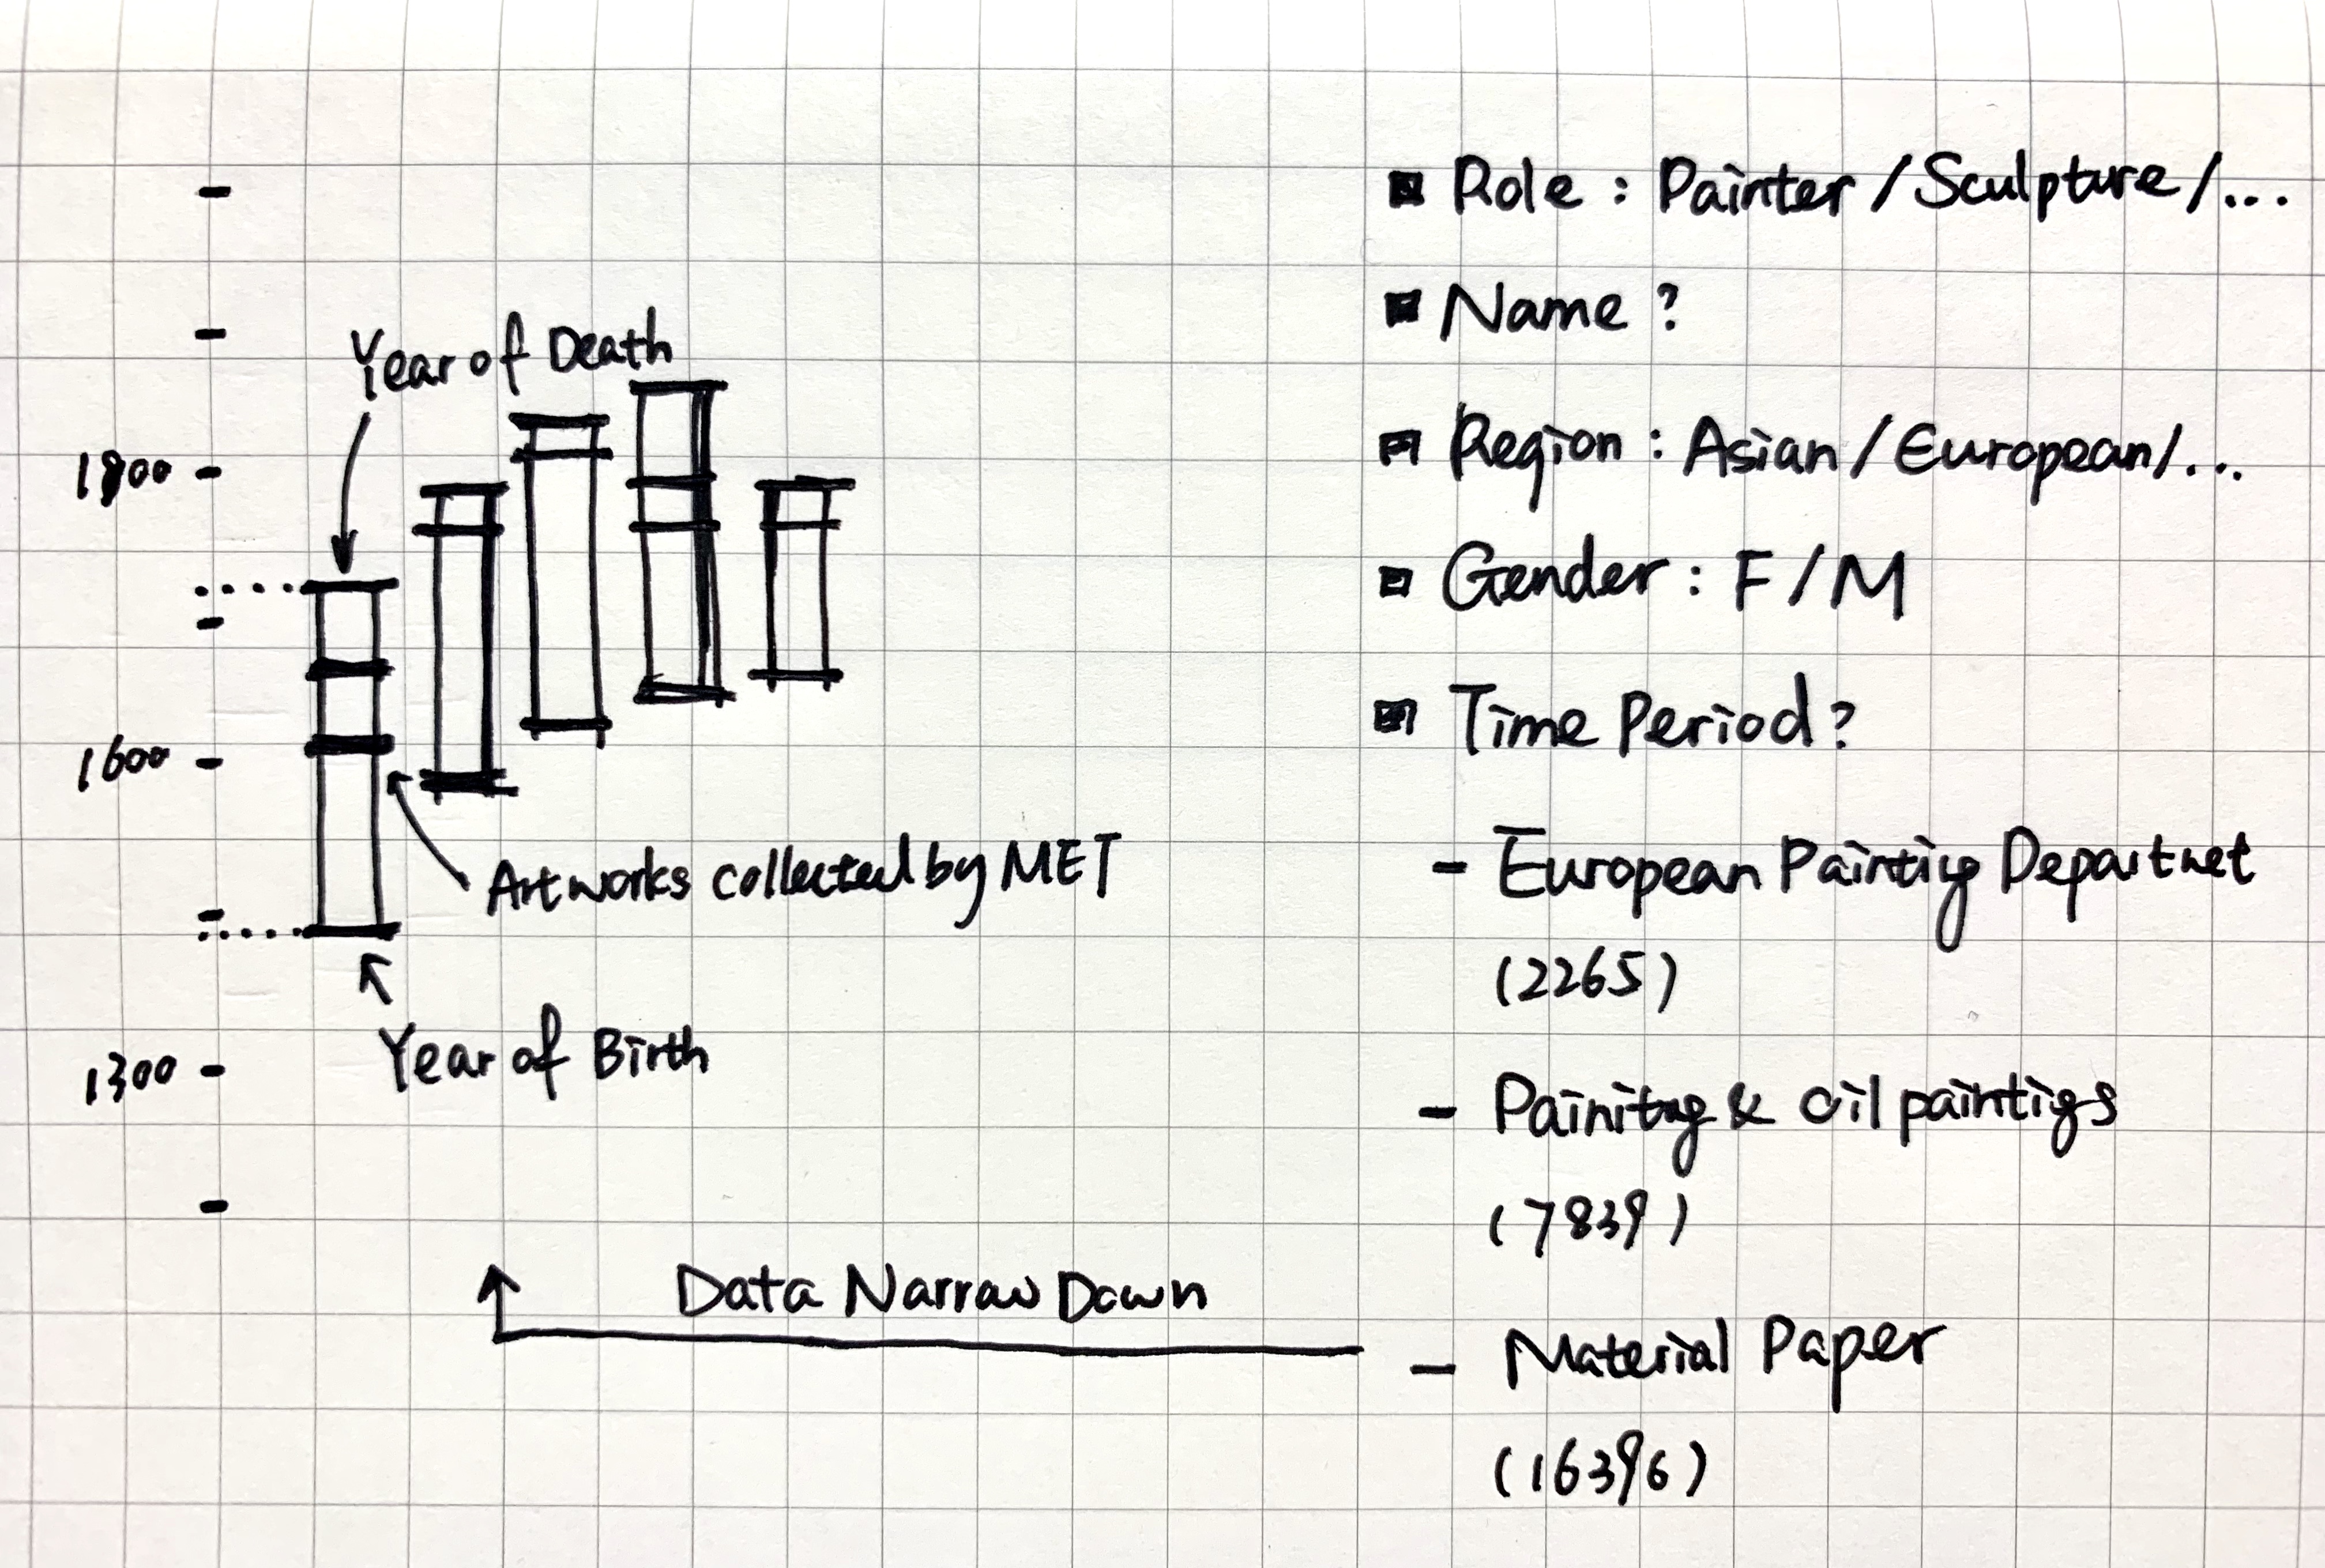 Year of Death
1800
1600
Artworks collected by MET
Year of Birth
1300
Data Narrow Down
Role : Painter / Sculpture / ...
Name ?
Region : Asian / European / ...
Gender : F / M
Time Period ?
- European Paintig Departnet
(2265)
- Painitng & oil paintigs
(7839)
- Material Paper
(16396)